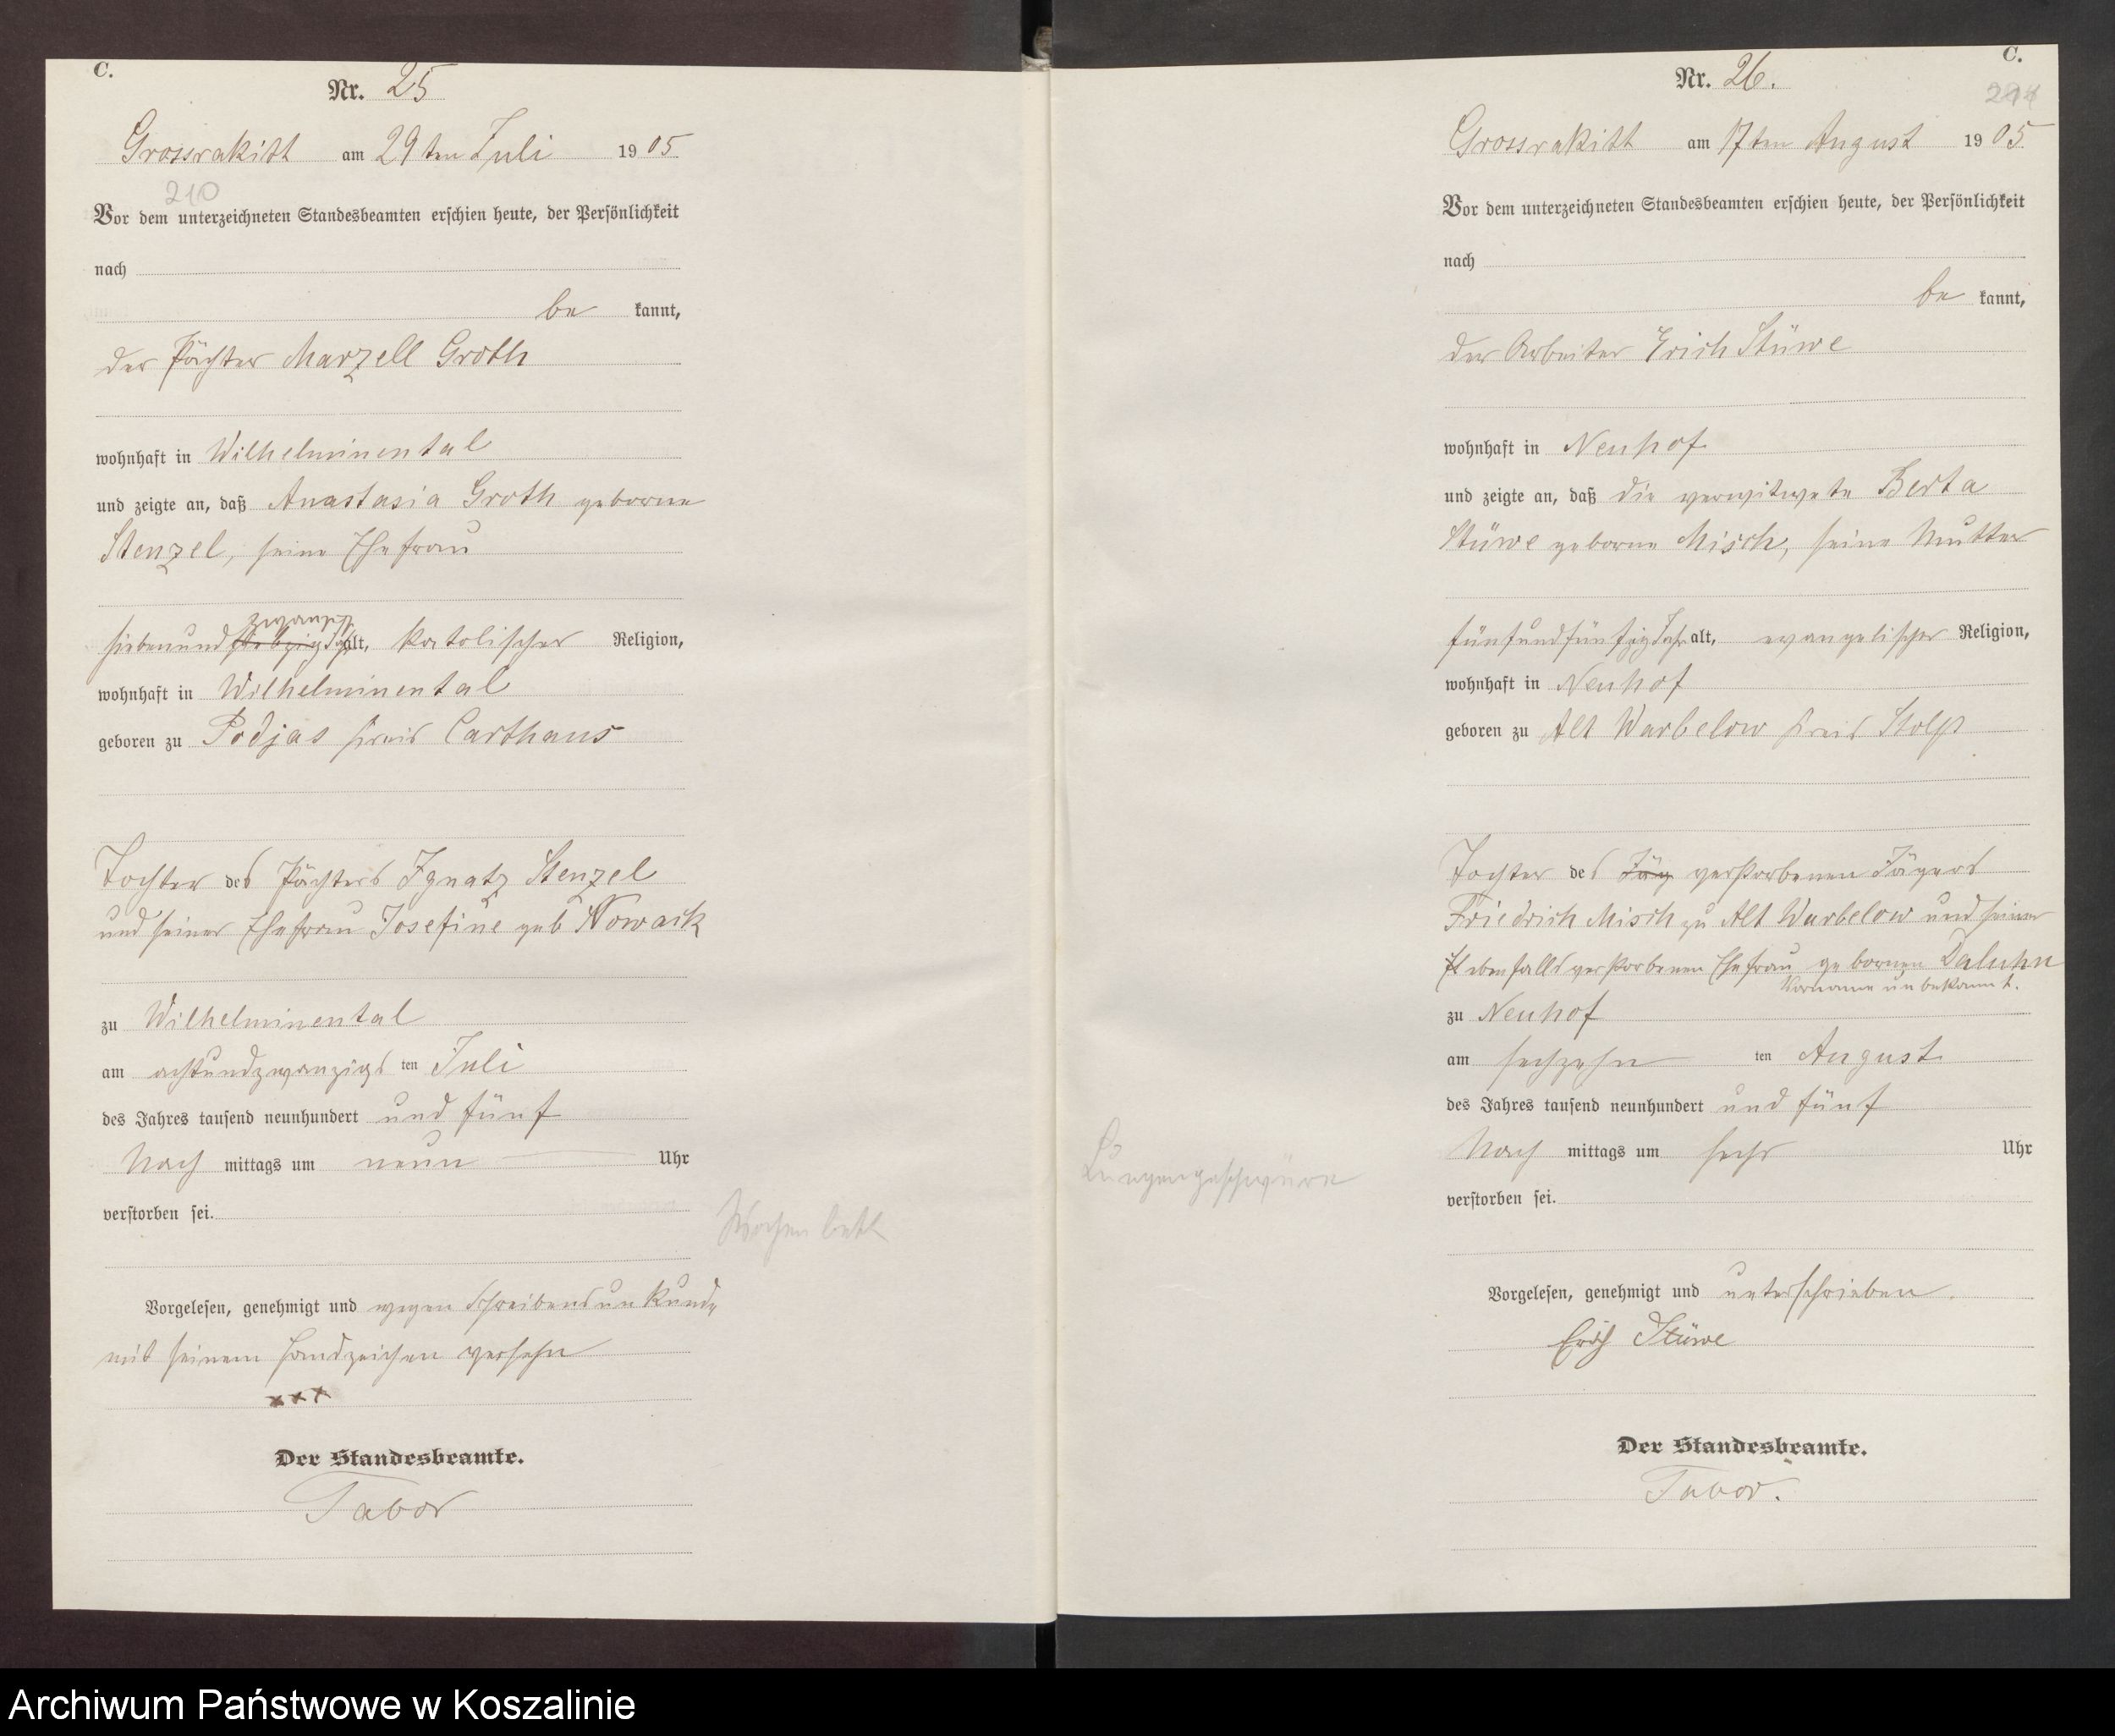 C.
Nr. 25
Grossrakitt am 29ten Juli 1905
210
Vor dem unterzeichneten Standesbeamten erschien heute, der Persönlichkeit
nach
be kannt,
der Pächter Marzell Groth
wohnhaft in Wilhelminental
und zeigte an, daß Anastasia Groth geborne
Stenzel, seine Ehefrau
zwanzig
siebenund siebzig Jahr alt, katolischer Religion,
wohnhaft in Wilhelminental
geboren zu Podjas Kreis Carthaus
Tochter des Pächters Ignatz Stenzel
und seiner Ehefrau Josefine geb Nowack
zu Wilhelminental
am achtundzwanzigs ten Juli
des Jahres tausend neunhundert und fünf
Nach mittags um neun Uhr
verstorben sei.
Wochenbett
Vorgelesen, genehmigt und wegen Schreibensunkunde
mit seinem Handzeichen versehn
xxx
Der Standesbeamte.
Tabor
C.
Nr. 26.
Grossrakitt am 17ten August 1905
Vor dem unterzeichneten Standesbeamten erschien heute, der Persönlichkeit
nach
be kannt,
der Arbeiter Erich Stüwe
wohnhaft in Neuhof
und zeigte an, daß die verwitwete Berta
Stüwe geborne Misch, seine Mutter
fünfundfünfzig Jahr alt, evangelischer Religion,
wohnhaft in Neuhof
geboren zu Alt Warbelow Kreis Stolp
Tochter des Jäg verstorbenen Jägers
Friedrich Misch zu Alt Warbelow und seiner
ebenfalls verstorbenen Ehefrau gebornen Daluhn
Vorname unbekannt.
zu Neuhof
am sechzehn ten August
des Jahres tausend neunhundert und fünf
Nach mittags um sechs Uhr
verstorben sei.
Lungengeschwüre
Vorgelesen, genehmigt und unterschrieben.
Erich Stüwe
Der Standesbeamte.
Tabor.
Archiwum Państwowe w Koszalinie